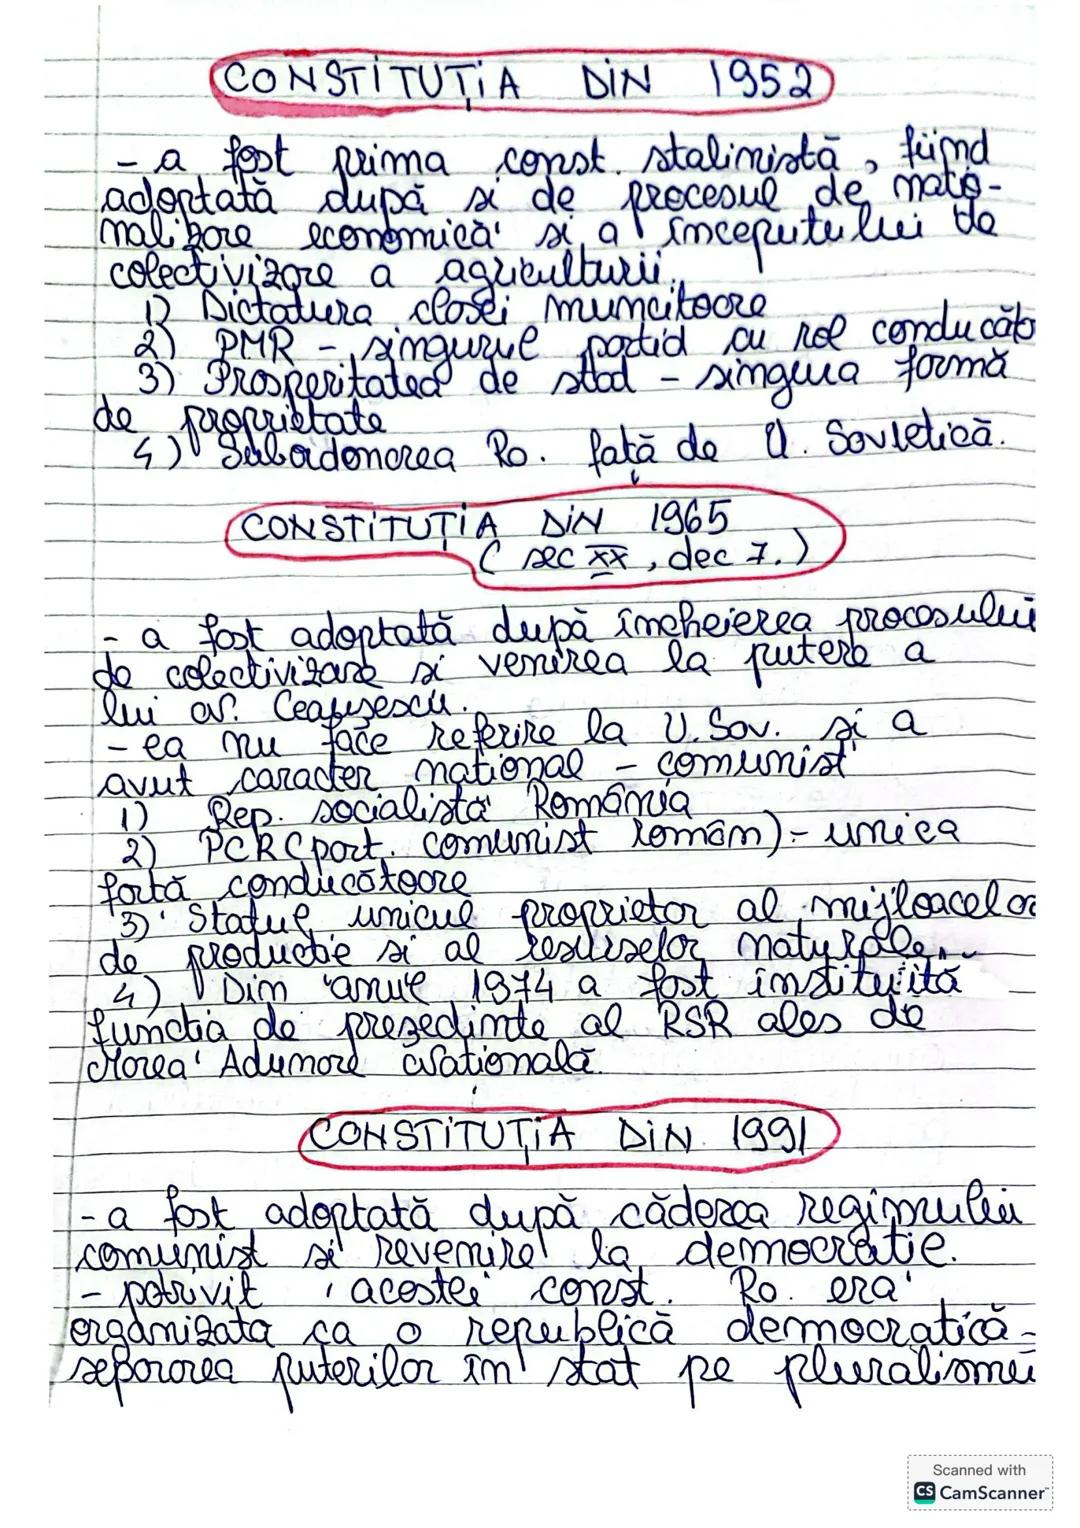 CONSTITUȚIA DIN 1952
- a fost prima const. stalinistă, fiind
adoptată după și de procesul de națio-
nalizare economică și a începutului de
colectivizare a agriculturii.
1) Dictatura clasei muncitoare
2) PMR - singurul partid cu rol conducăto
3) Prosperitatea de stat - singura formă
de proprietate
4) Subordonarea Ro. față de U. Sovietică.
CONSTITUȚIA DIN 1965
( sec XX, dec 7.)
- a fost adoptată după încheierea procesului
de colectivizare și venirea la putere a
lui N. Ceaușescu.
- ea nu face referire la U. Sov. și a
avut caracter național - comunist
1) Rep. socialistă România
2) PCR (part. comunist român) - unica
forță conducătoare
3) Statul unicul proprietar al mijloacelor
de producție și al resurselor naturale.
4) Din anul 1974 a fost instituită
funcția de președinte al RSR ales de
Marea Adunare Națională.
CONSTITUȚIA DIN 1991
- a fost adoptată după căderea regimului
comunist și revenire la democrație.
- potrivit acestei const. Ro. era
organizată ca o republică democratică -
separarea puterilor în stat pe pluralismu
Scanned with
CS CamScanner